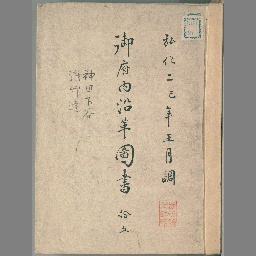 弘化二巳年五月調
御府内沿革圖書 拾五
神田下谷
浅草邊